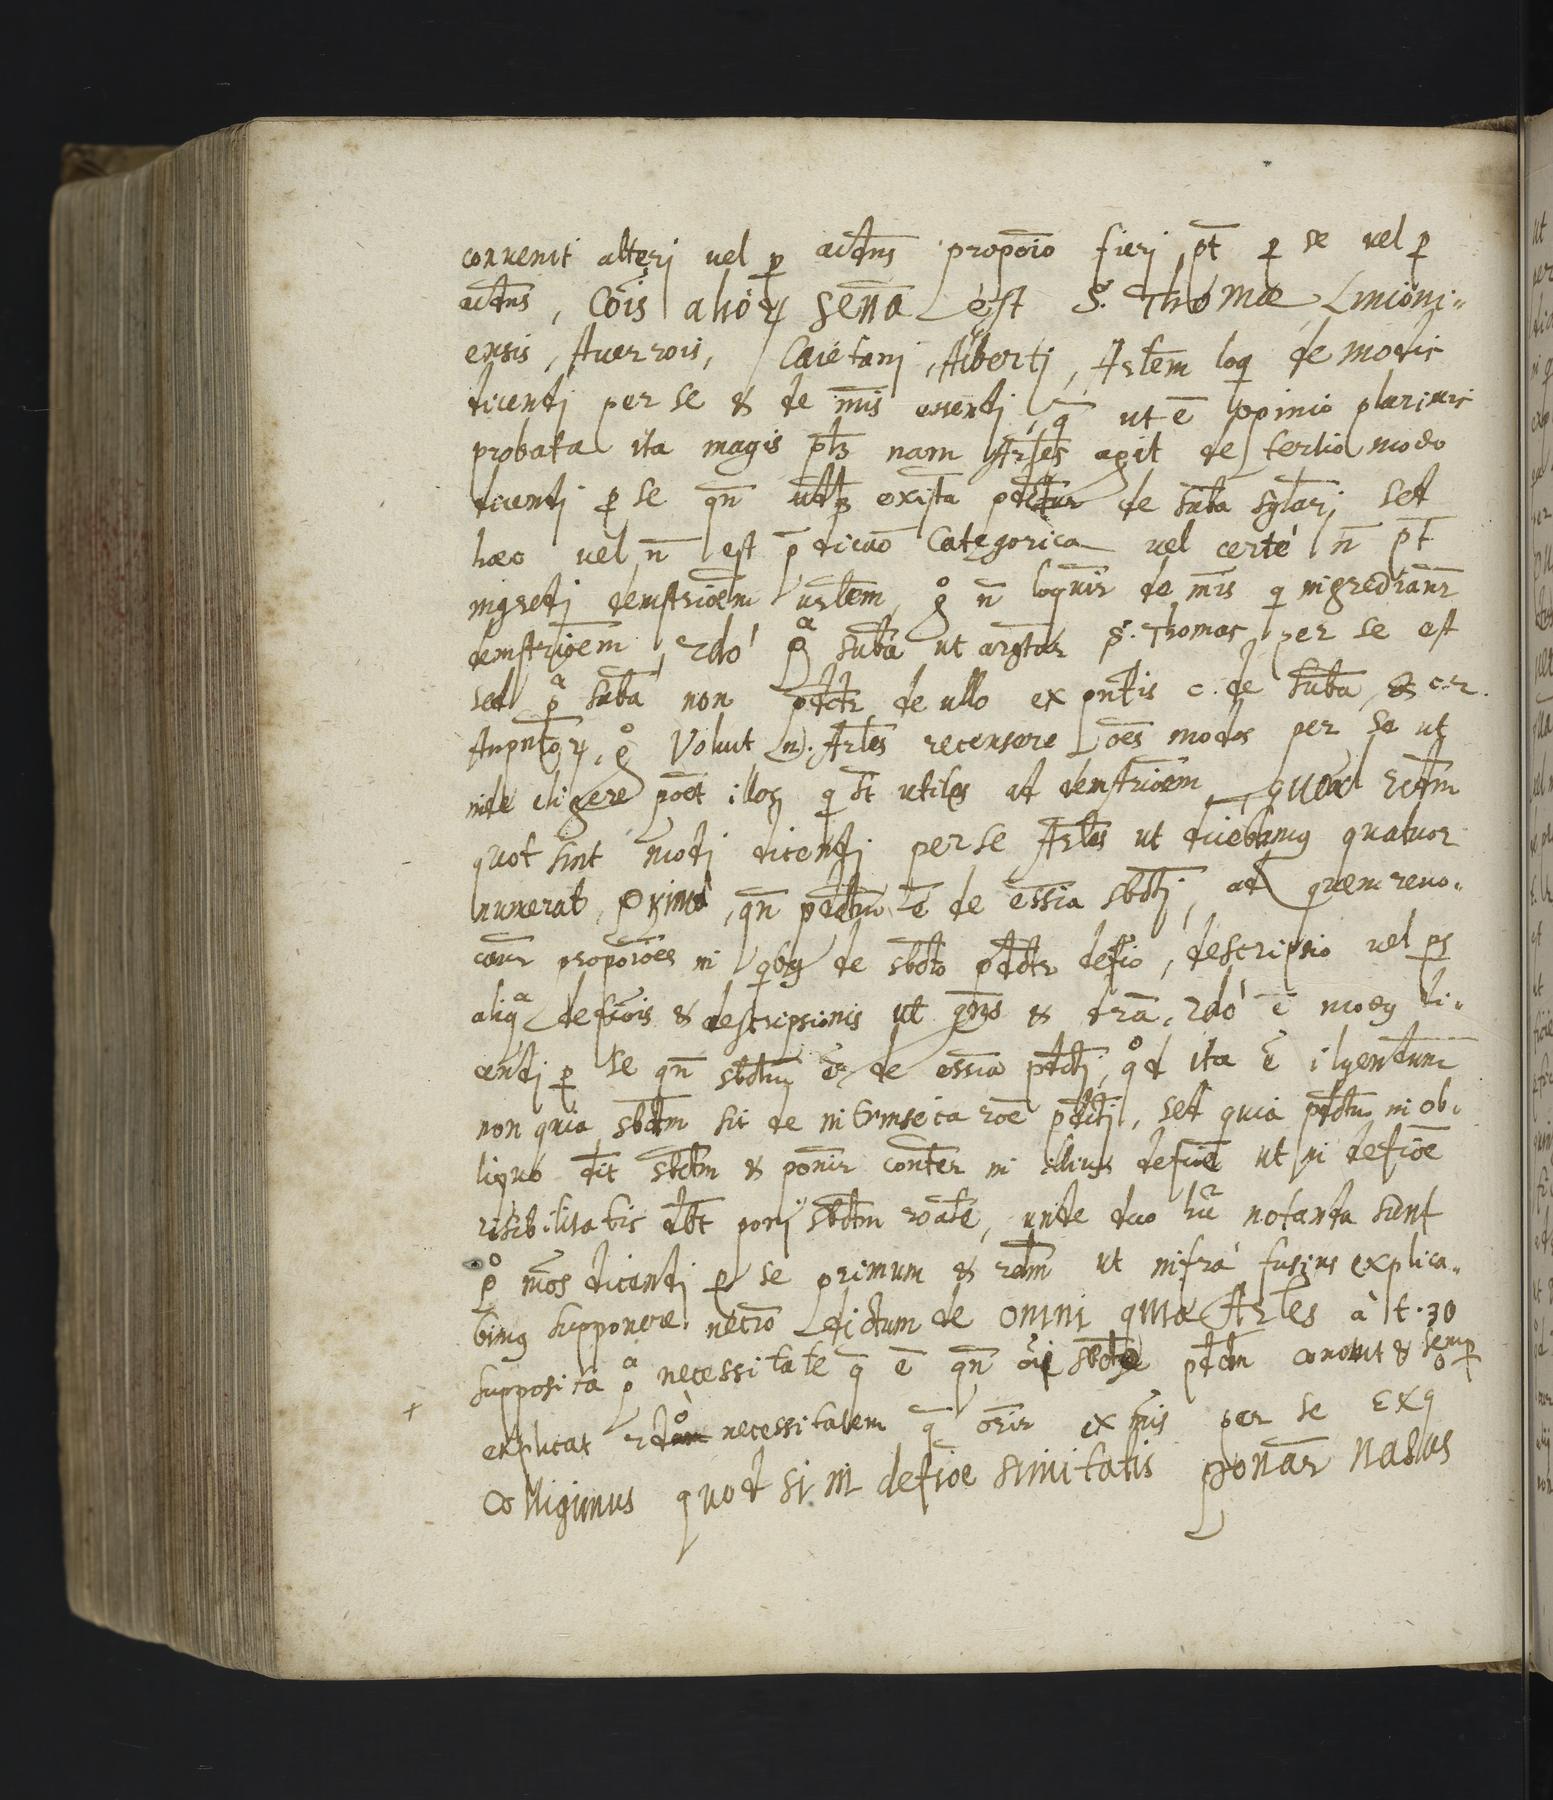 conuenit alterj uel p̱ acdñs propoïo fierj p̄t p̱ se uel p̱
acdñs, Cöis aliör̃ señã est S. Thomæ, Linconi-
ensis, Auerrois, Caietanj, Albertj, Arlem loqj de modis
dicendj per se & de m̄is essendj, q̄ ut ē opinio plurimis
probata ita magis plz nam Arles agit de tertio modo
dicendj p̱ se qñ exista pdctur de suba sglarj sed
hæc uel ñ est p̄dicaō Categorica uel certè ñ p̄t
ingredj demstrioem ñ loqunr de m̄is q ingredianr
demstrioem, 2do pa suba ut argtar S. Thomas per se est
sed pa suba non pdctr de ullo ex pntis c. de suba, & c. 2.
Voluit n. Arles recensere ões modos per se ut
inde eligere poet illos q st utiles ad demstrioem, quoad 2dm
quot sint modj dicendj per se Arles ut dicebamus quatuor
numerat, primo, qñ pdctm ē de essia sbctj, ad quem reuo-
canr propoiões in qbus de sbcto pdctr defio, descripsio uel ps
aliqa defiois & descripsionis ut & dra, 2do ē modus di-
cendj p̱ se qñ sbctm ē de essia pdctj, qod ita ē
non quia sbctm sit de intrinseca roē pdctj, sed quia pdctm in ob-
liquo dit sbctm & ponir in illius defioē ut in defioē
risibilitatis dbt ponj sbctm roale, unde duo notanda sunt
po m̄os dicendj p̱ se primum & 2dm ut infra fusius explica-
bimus supponere necrio dictum de omni quia Arles à t. 30
supposita pa necessitate q̄ ē qñ oi sbcto pdctm conuenit & semp̱
explicat 2do necessitatem q̄ orir ex m̄is per se Ex q
colligimus quod si in defioē simitatis ponar nasus